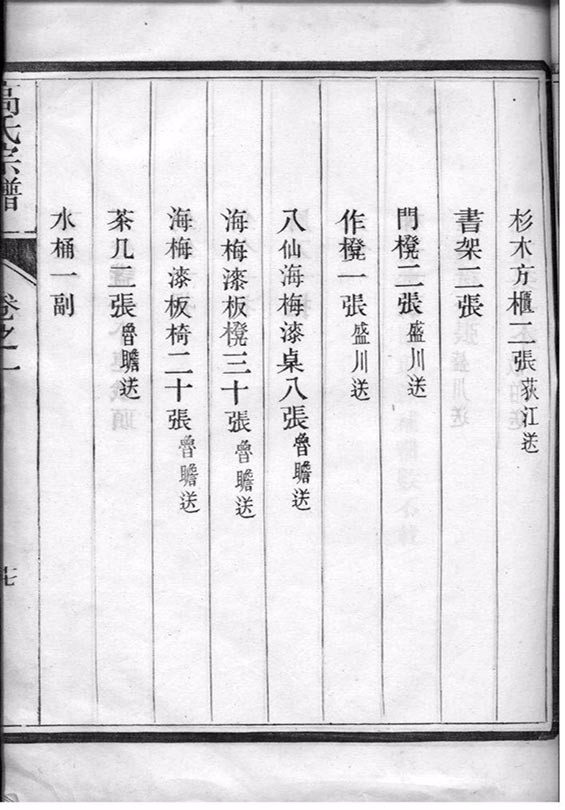 杉木方櫃二張荻江送
書架二張
門櫈二張盛川送
作櫈一張盛川送
八仙海梅漆桌八張魯瞻送
海梅漆板櫈三十張魯瞻送
海梅漆板椅二十張魯瞻送
茶几二張魯瞻送
水桶一副
高氏宗譜
卷之一